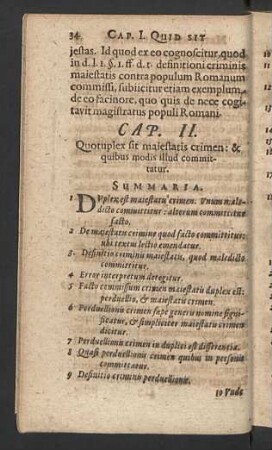 34 CAP. I. QUID SIT
jestas. Id quod ex eo cognoscitur, quod
in d. l. 1. §. 1. ff d. t. definitioni criminis
maiestatis contra populum Romanum
commissi, subijcitur etiam exemplum,
de eo facinore, quo quis de nece cogi-
tavit magistratus populi Romani.
CAP. II.
Quotuplex sit maiestatis crimen: &
quibus modis illud commit-
tatur.
SUMMARIA.
1 DVplex est maiestatis crimen. Vnum male-
dicto committitur: alterum committitur
facto.
2 De maiestatis crimine quod facto committitur:
ubi textus lectio emendatur.
3 Definitio criminis maiestatis, quod maledicto
committitur.
4 Error interpretum detegitur.
5 Facto commissum crimen maiestatis duplex est:
perduellio, & maiestatis crimen.
6 Perduellionis crimen sæpe generis nomine signi-
ficatur, & simpliciter maiestatis crimen
dicitur.
7 Perduellionis crimen in duplici est differentia.
8 Quasi perduellionis crimen quibus in personis
committatur.
9 Definitio criminis perduellionis.
10 Vnde